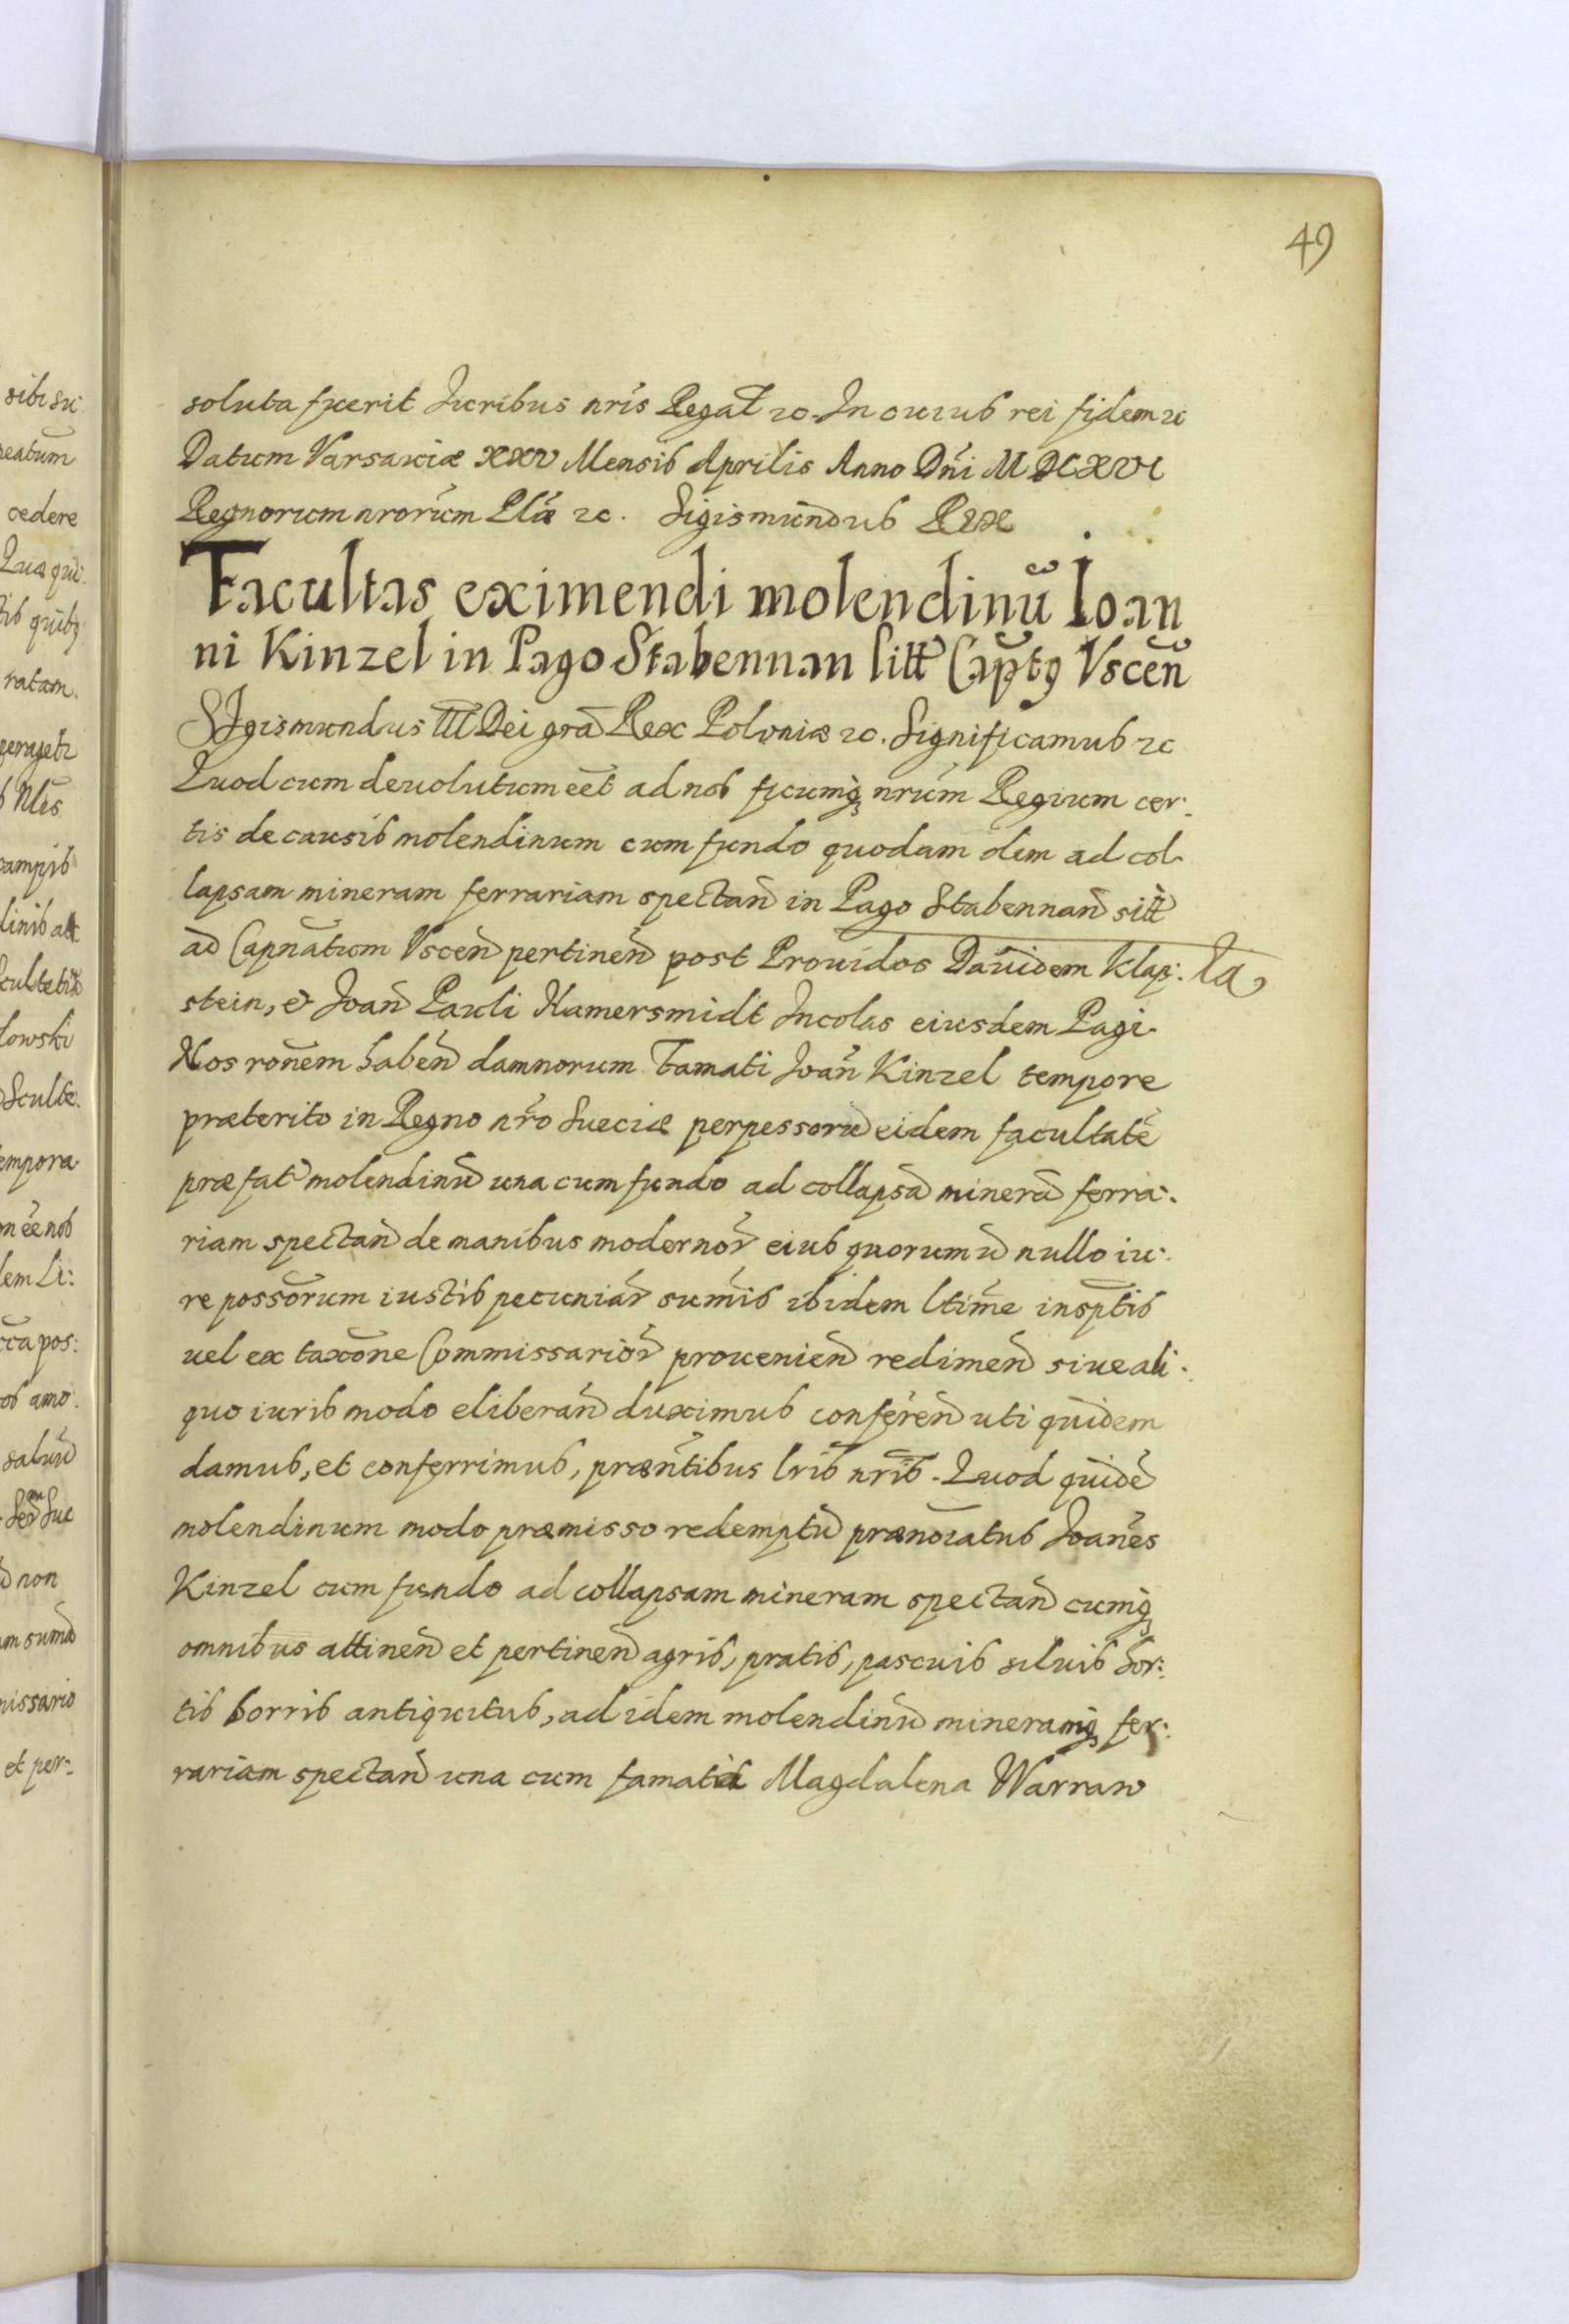 49
soluta fuerit Iuribus nris Regal ꝛc. In cuius rei fidem ꝛc
Datum Varsauiæ XXV Mensis Aprilis Anno Dñi MDCXVI
Regnorum nrorum Plīæ ꝛc. Sigismundus Rex
Facultas eximendi molendinū Ioan
ni Kinzel in Pago Stabennan sitt Capty Vscen̄
SIgismundus III Dei grā Rex Poloniæ ꝛc. Significamus ꝛc
Quod cum deuolutum eēt ad nos fiumq₃ nrum Regium cer:
tis de causis molendinum cum fundo quodam olim ad col
lapsam mineram ferrariam spectan̄ in Pago Stabennan sitt
ad Capnātum Vscen̄ pertinen̄ post Prouidos Dauidem Klap: ta
stein, & Joan̄ Pauli Hamersmidt Incolas eiusdem Pagi.
Nos ronem haben̄ damnorum Famati Joan̄ Kinzel tempore
præterito in Regno nr̄o Sueciæ perpessorū eidem facultatē
præfatˀ molendinū una cum fundo ad collapsā minerā ferra:
riam spectan̄ de manibus modernor̄ eius quorumū nullo iu:
re possorum iustis pecuniar̄ sum̄is ibidem ltīme insptīs
uel ex taxōne Commissarior̄ prouenien̄ redimen̄ siue ali:
quo iuris modo eliberan̄ duximus conferen̄ uti quidem
damus, et conferrimus, præn̄tibus lrīs nrīs. Quod quidē
molendinum modo præmisso redemptū prænoīatus Joan̄es
Kinzel cum fundo ad collapsam mineram spectan̄ cumq₃
omnibus attinen̄ et pertinen̄ agris, pratis, pascuis siluis hor:
tis horris antiquitus, ad idem molendinū mineramq₃ fer:
rariam spectan̄ una cum famatā Magdalena Warran